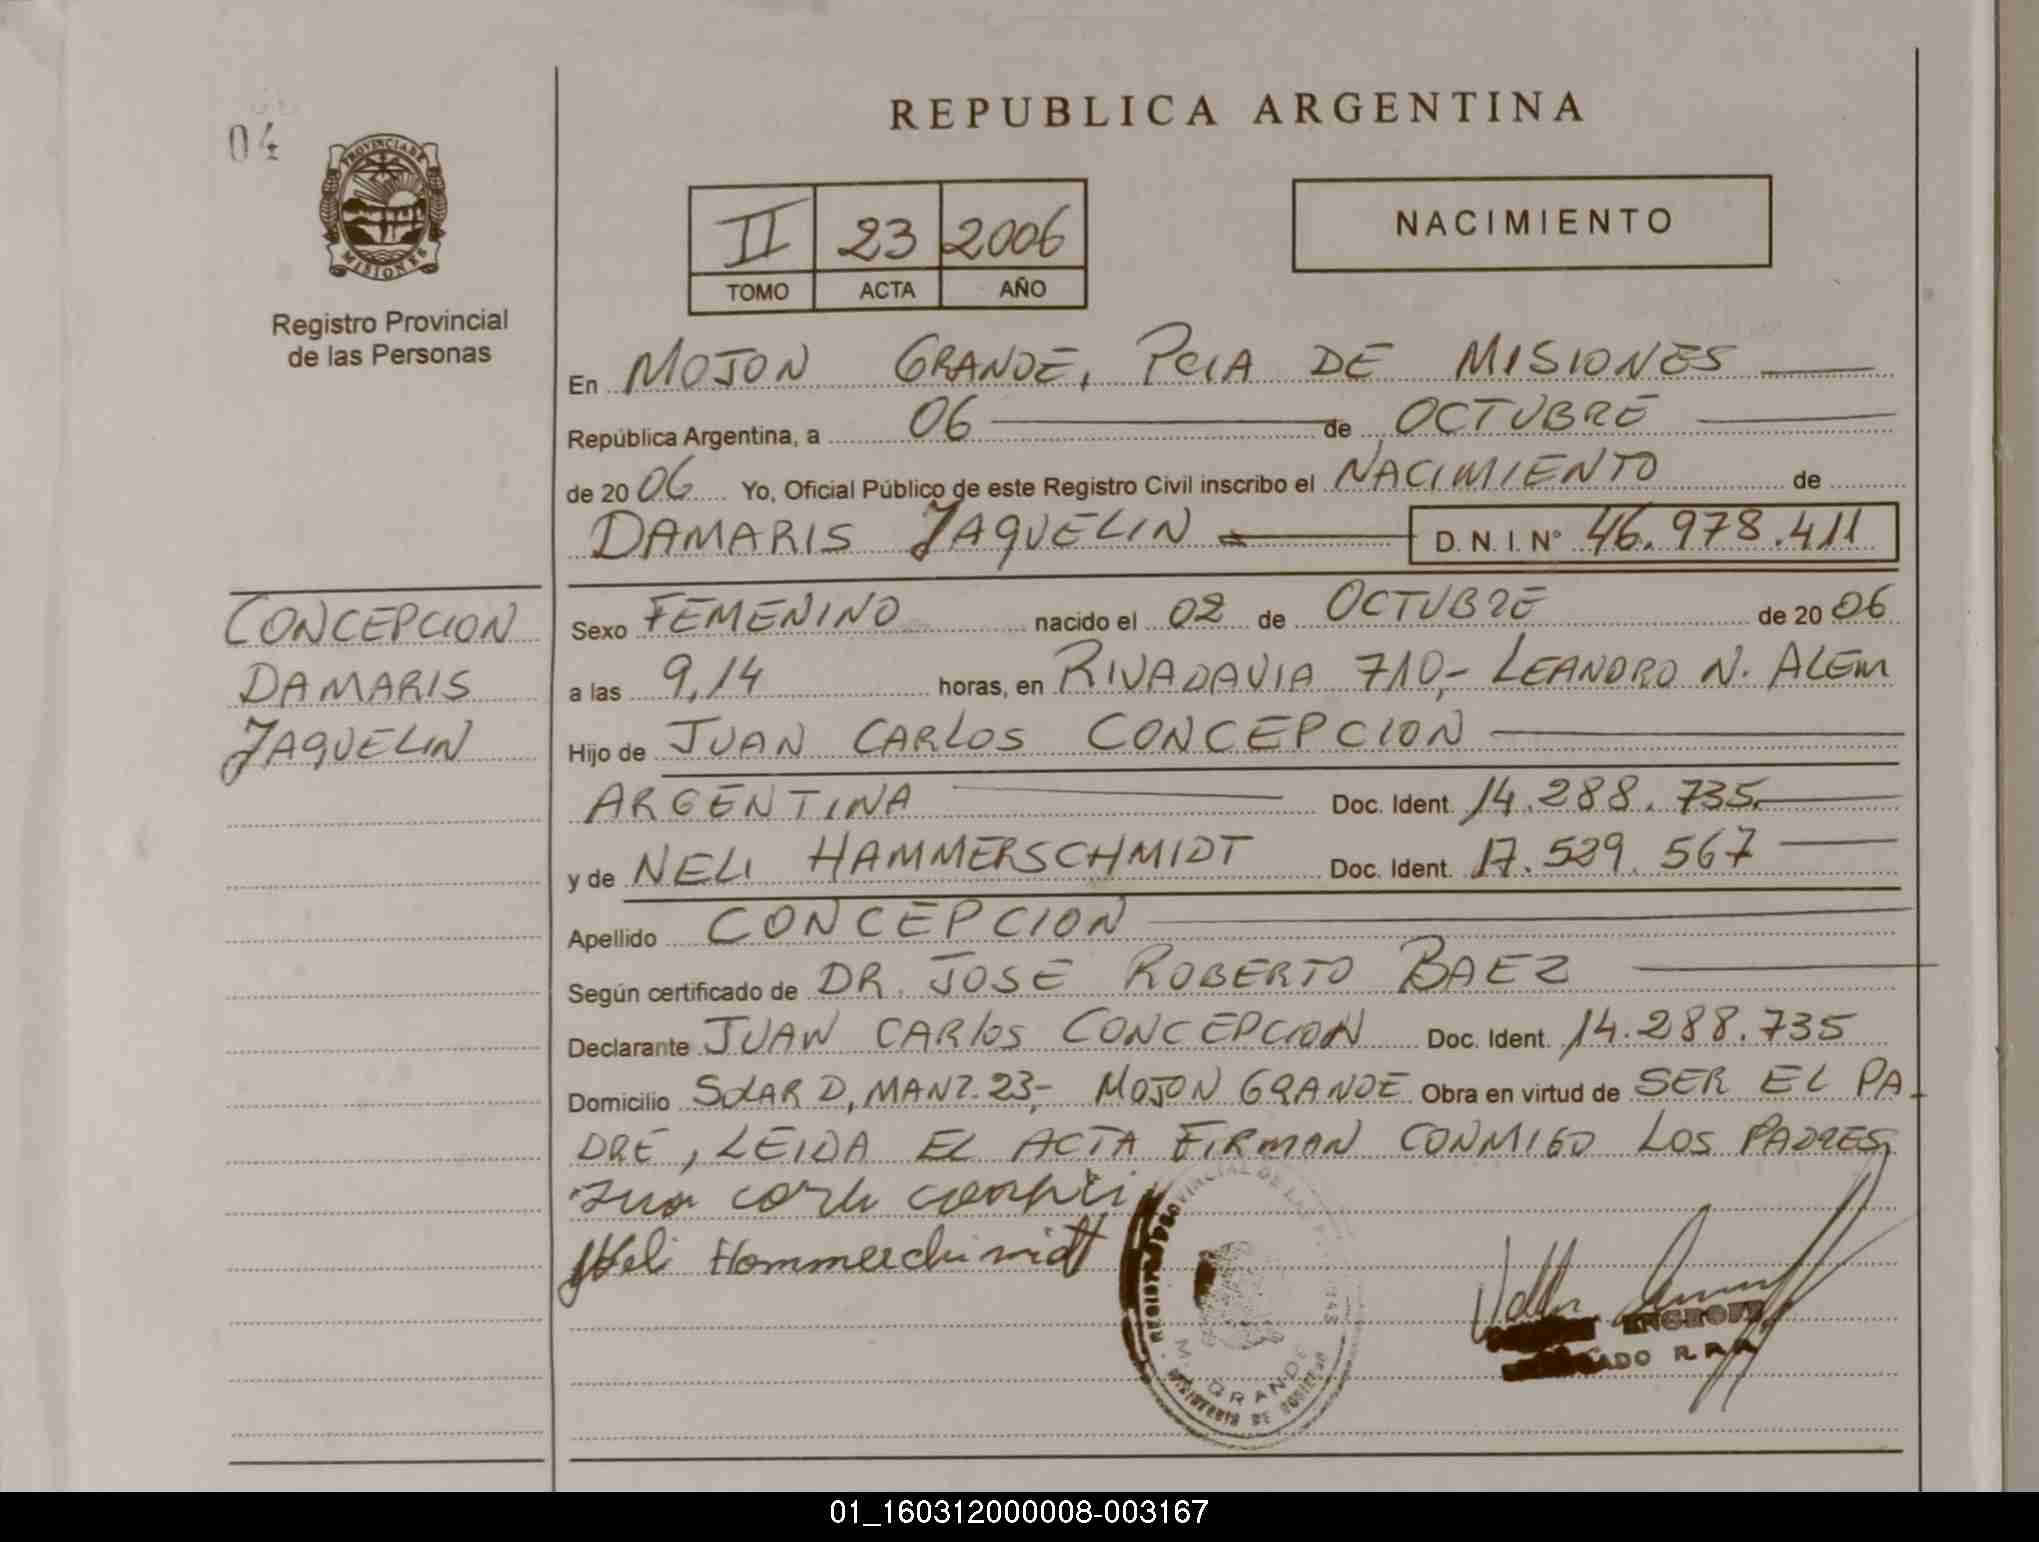 04
PROVINCIA DE
MISIONES
Registro Provincial
de las Personas
REPUBLICA ARGENTINA
II 23 2006
TOMO ACTA AÑO
NACIMIENTO
En MOJON GRANDE, PCIA DE MISIONES
República Argentina, a 06 de OCTUBRE
de 20 06 Yo, Oficial Público de este Registro Civil inscribo el NACIMIENTO de
DAMARIS JAQUELIN D.N.I.N° 46.978.411
CONCEPCION
DAMARIS
JAQUELIN
Sexo FEMENINO nacido el 02 de OCTUBRE de 20 06
a las 9,14 horas, en RIVADAVIA 710,- LEANDRO N. ALEM
Hijo de JUAN CARLOS CONCEPCION
ARGENTINA Doc. Ident. 14.288.735
y de NELI HAMMERSCHMIDT Doc. Ident. 17.529.567
Apellido CONCEPCION
Según certificado de DR. JOSE ROBERTO BAEZ
Declarante JUAN CARLOS CONCEPCION Doc. Ident. 14.288.735
Domicilio SOLAR D, MANZ. 23,- MOJON GRANDE Obra en virtud de SER EL PA-
DRE, LEIDA EL ACTA FIRMAN CONMIGO LOS PADRES,
Neli Hammerchimidt
M. GRANDE
R.P.P.
01_160312000008-003167